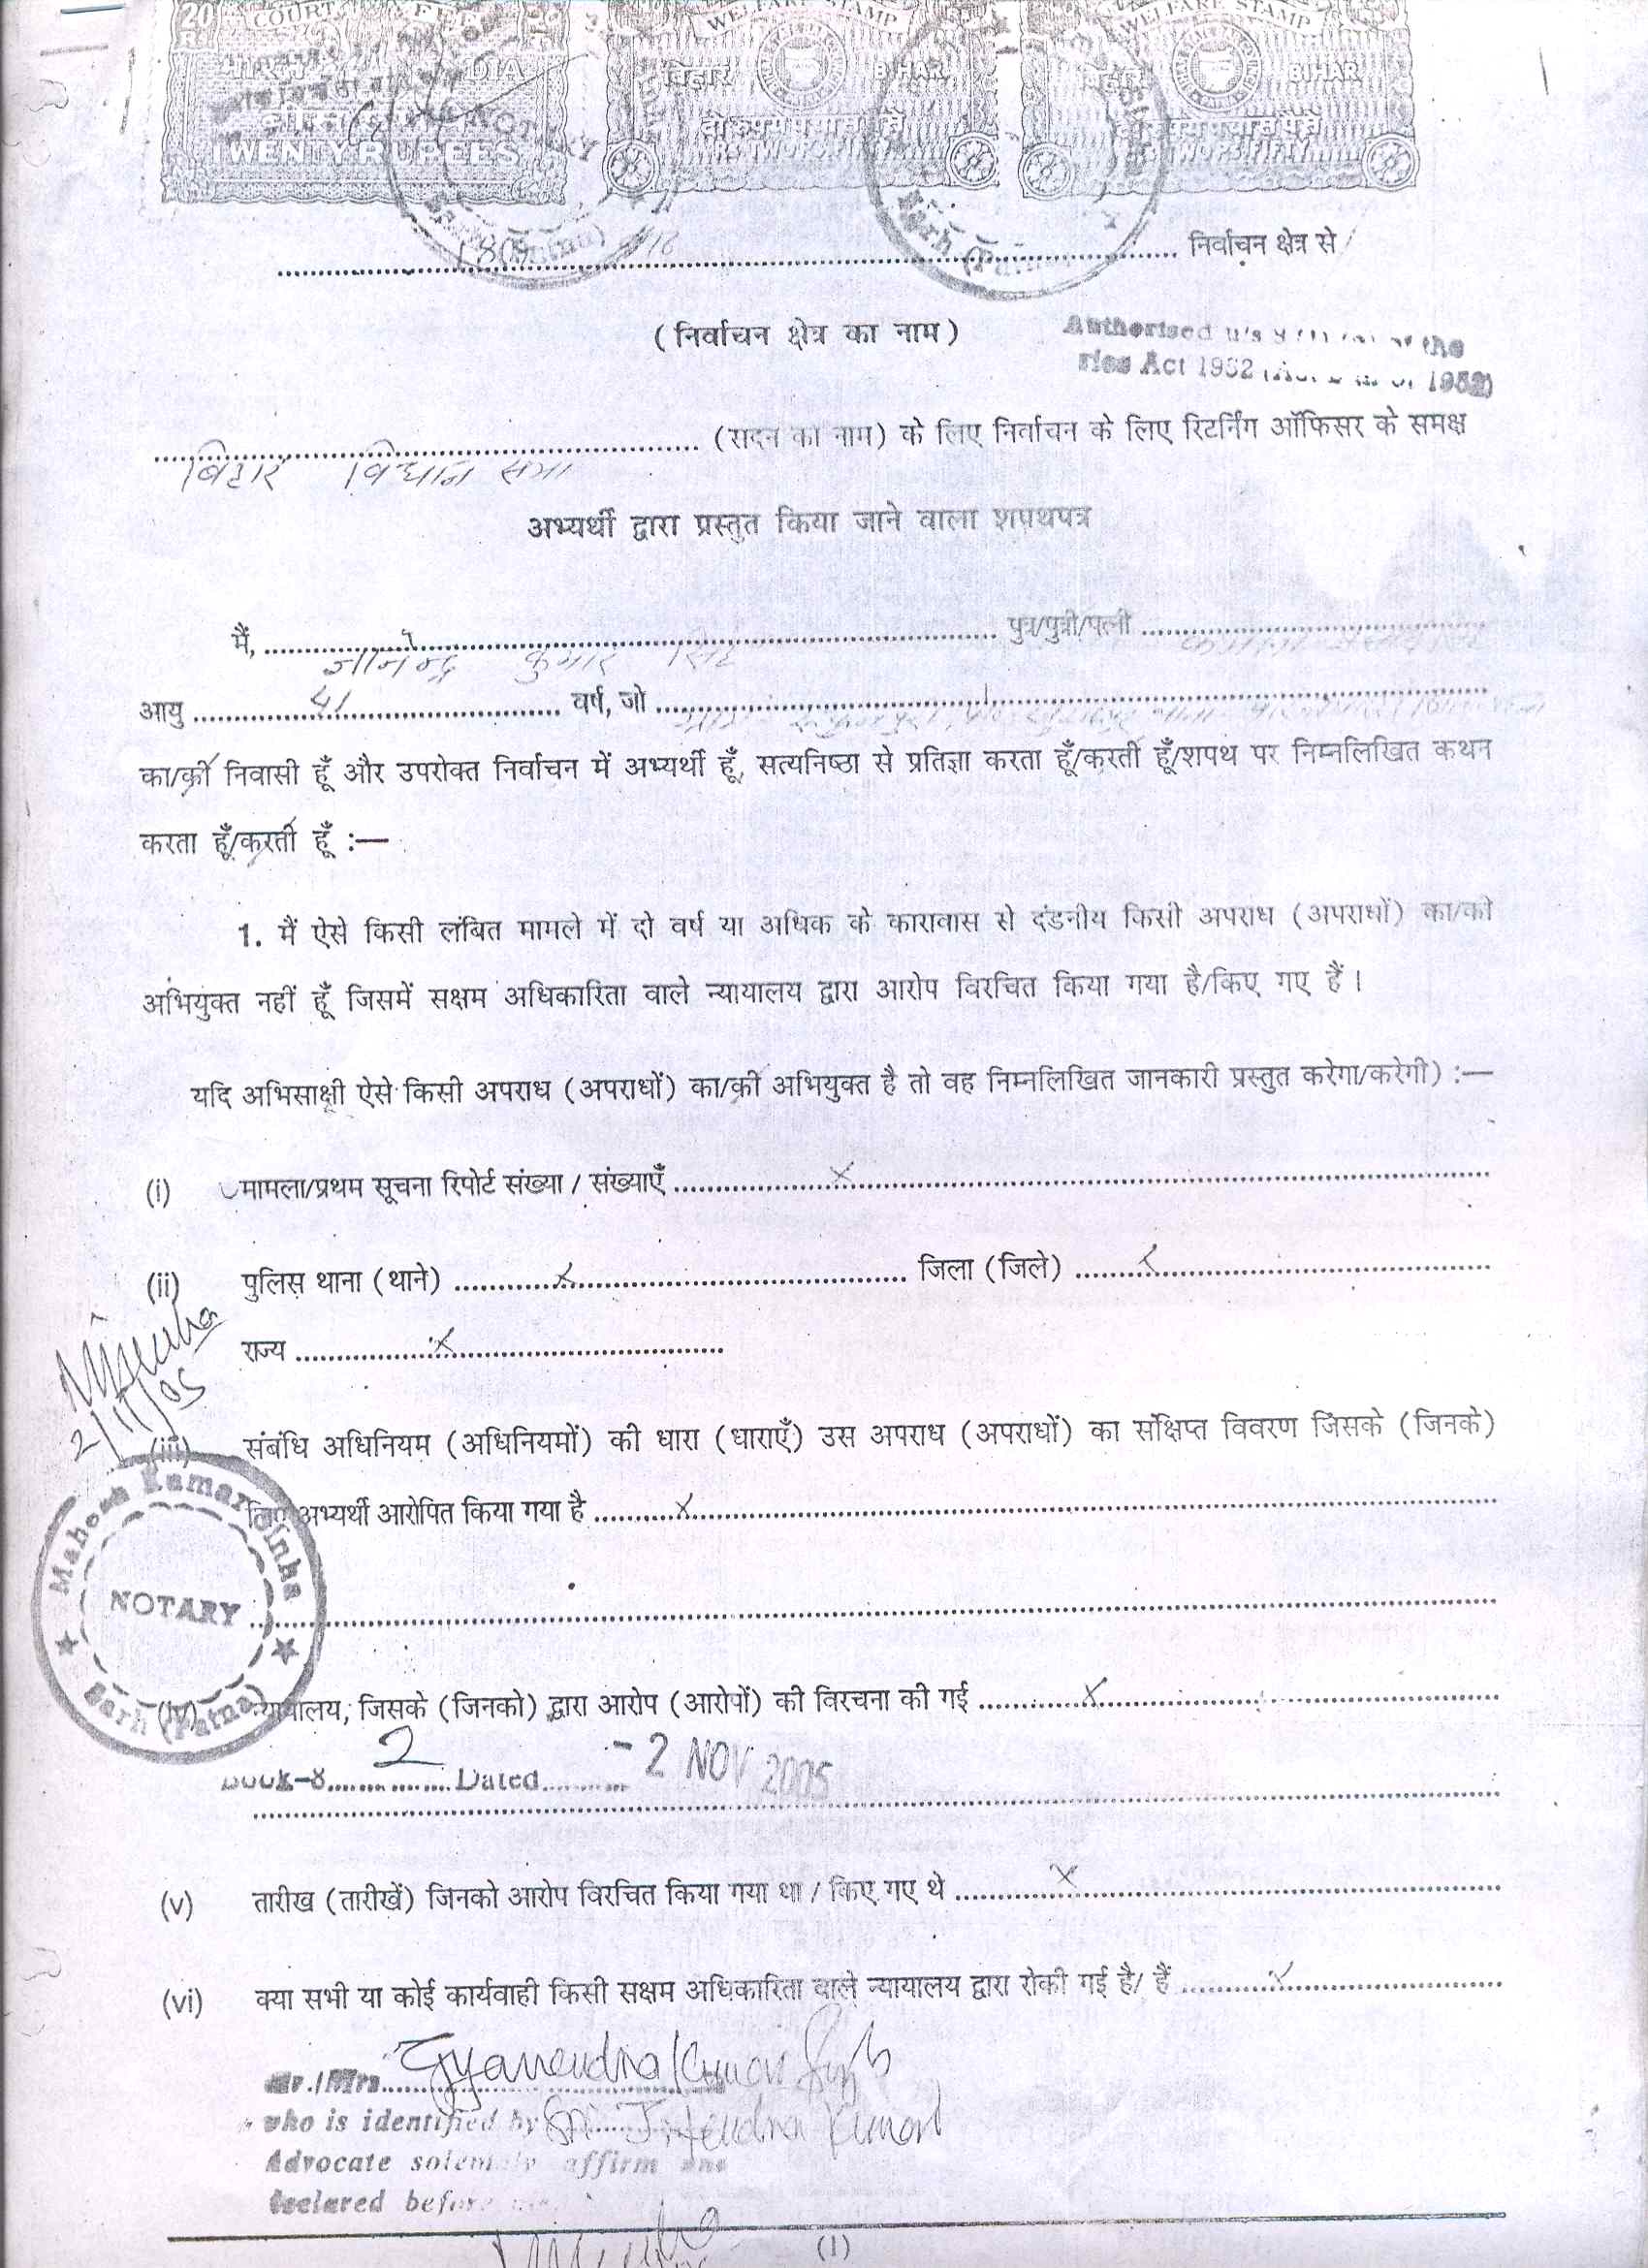 20 COURT FEE 20
भारत INDIA
TWENTY RUPEES
WELFARE STAMP
बिहार BIHAR
दो रुपये पचास पैसे
WELFARE STAMP
बिहार BIHAR
दो रुपये पचास पैसे
NOTARY
Barh (Patna)
Barh (Patna)
.................... निर्वाचन क्षेत्र से
(निर्वाचन क्षेत्र का नाम)
Authorised u/s of the
ries Act 1952 of 1952)
.................... (सदन का नाम) के लिए निर्वाचन के लिए रिटर्निंग ऑफिसर के समक्ष
बिहार विधान सभा
अभ्यर्थी द्वारा प्रस्तुत किया जाने वाला शपथपत्र
मैं, .................... पुत्र/पुत्री/पत्नी ....................
ज्ञानेन्द्र कुमार सिंह
आयु ........ 41 ........ वर्ष, जो ....................
का/की निवासी हूँ और उपरोक्त निर्वाचन में अभ्यर्थी हूँ, सत्यनिष्ठा से प्रतिज्ञा करता हूँ/करती हूँ/शपथ पर निम्नलिखित कथन
करता हूँ/करती हूँ :—
1. मैं ऐसे किसी लंबित मामले में दो वर्ष या अधिक के कारावास से दंडनीय किसी अपराध (अपराधों) का/की
अभियुक्त नहीं हूँ जिसमें सक्षम अधिकारिता वाले न्यायालय द्वारा आरोप विरचित किया गया है/किए गए हैं ।
यदि अभिसाक्षी ऐसे किसी अपराध (अपराधों) का/की अभियुक्त है तो वह निम्नलिखित जानकारी प्रस्तुत करेगा/करेगी) :—
(i) मामला/प्रथम सूचना रिपोर्ट संख्या / संख्याएँ ........ X ........
(ii) पुलिस थाना (थाने) ........ X ........ जिला (जिले) ........ X ........
राज्य ........ X ........
2/11/05
(iii) संबंधि अधिनियम (अधिनियमों) की धारा (धाराएँ) उस अपराध (अपराधों) का संक्षिप्त विवरण जिसके (जिनके)
लिए अभ्यर्थी आरोपित किया गया है ........ X ........
Mahesh Kumar Sinha
NOTARY
Barh (Patna)
(iv) न्यायालय, जिसके (जिनको) द्वारा आरोप (आरोपों) की विरचना की गई ........ X ........
Book-8 ...... 2 ...... Dated ...... - 2 NOV 2005
(v) तारीख (तारीखें) जिनको आरोप विरचित किया गया था / किए गए थे ........ X ........
(vi) क्या सभी या कोई कार्यवाही किसी सक्षम अधिकारिता वाले न्यायालय द्वारा रोकी गई है/ हैं ........ X ........
Mr./Mrs. Gyanendra Kumar Singh
who is identified by Sri Jitendra Kumar
Advocate solemnly affirm and
declared before
(1)